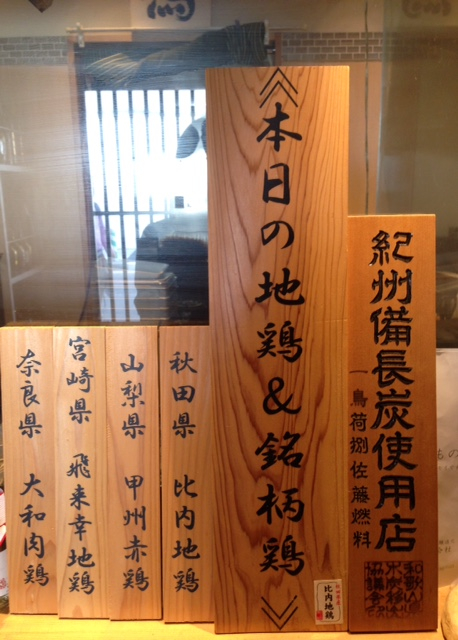 紀州備長炭使用店
一鳥荷捌佐藤燃料
和歌山
木炭移出
協議会
本日の地鶏&銘柄鶏
比内地鶏
秋田県 比内地鶏
山梨県 甲州赤鶏
宮崎県 飛来幸地鶏
奈良県 大和肉鶏